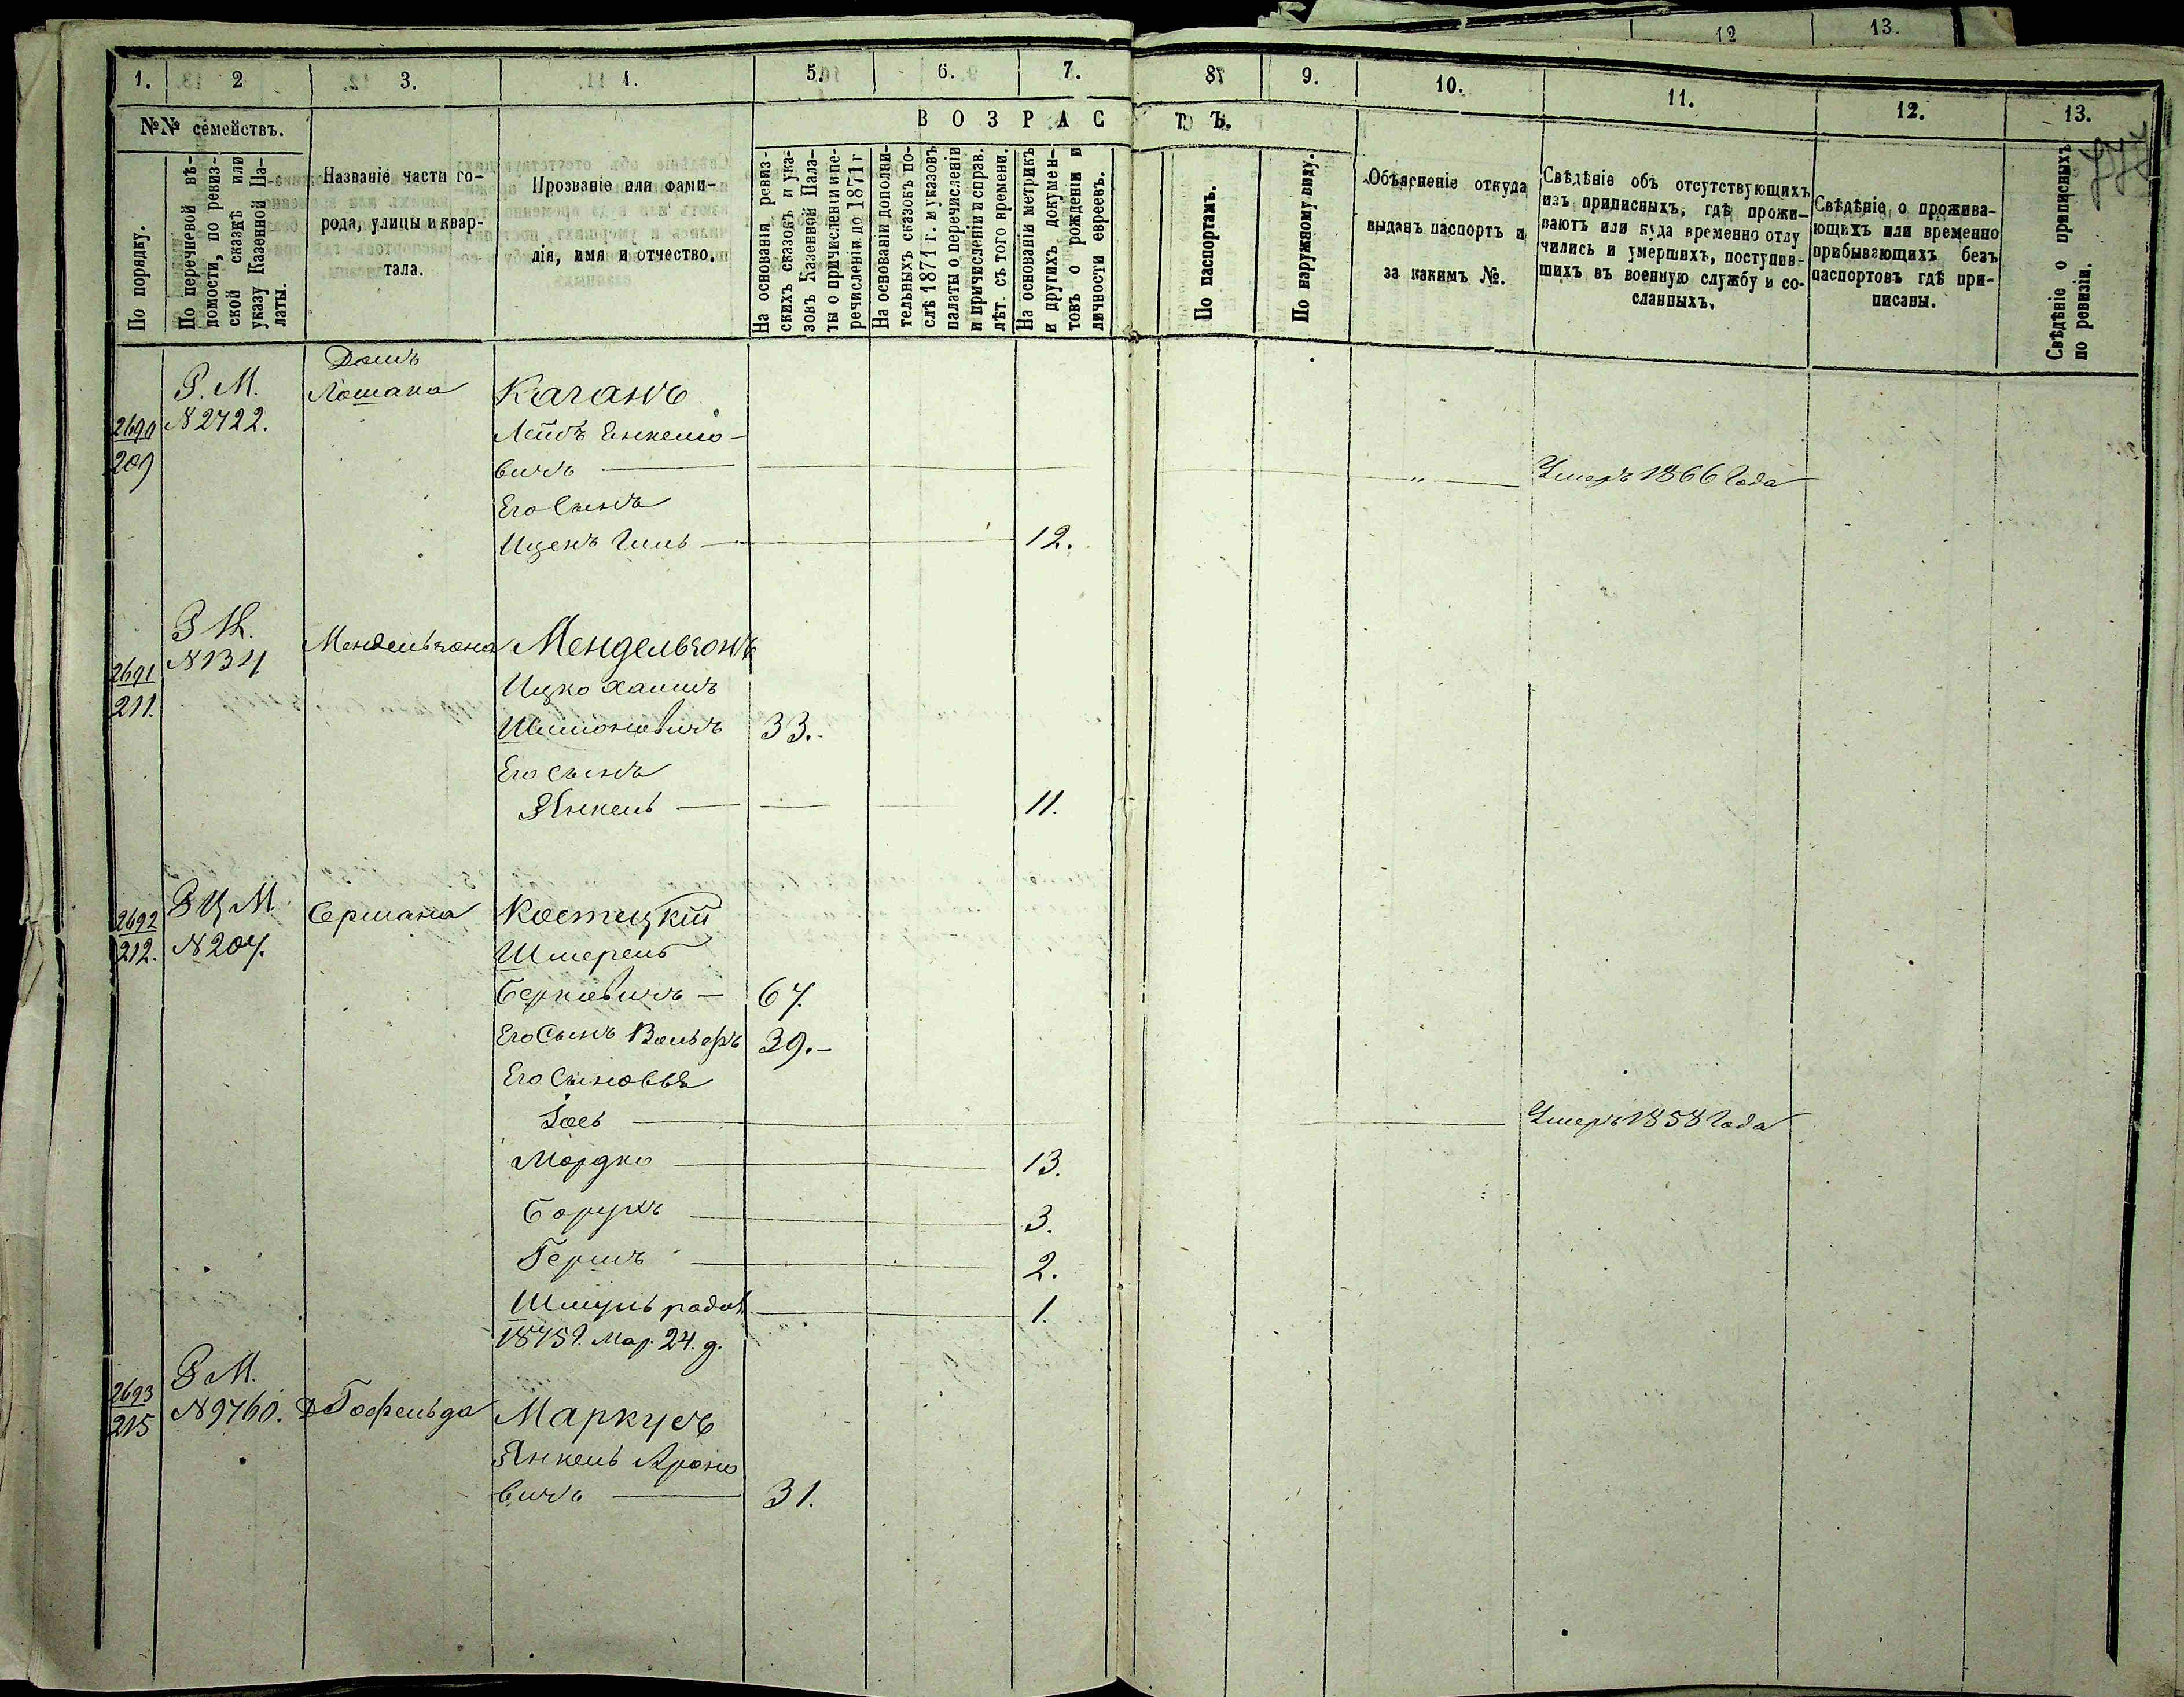 12 13.
1. 2 3. 4. 5. 6. 7. 8. 9. 10. 11. 12. 13.
№№ семействъ.
По порядку.
По перечневой вѣ-
домости, по ревиз-
ской сказкѣ или
указу Казенной Па-
латы.
Названіе части го-
рода, улицы и квар-
тала.
Прозваніе или фами-
лія, имя и отчество.
ВОЗРАСТЪ.
На основаніи ревиз-
скихъ сказокъ и ука-
зовъ Казенной Пала-
ты о причисленіи и пе-
речисленіи до 1871 г
На основаніи дополни-
тельныхъ сказокъ по-
слѣ 1871 г. и указовъ
палаты о перечисленіи
и причисленіи и справ.
лѣт. съ того времени.
На основаніи метрикъ
и другихъ докумен-
товъ о рожденіи и
личности евреевъ.
По паспортамъ.
По наружному виду.
Объясненіе откуда
выданъ паспортъ и
за какимъ №.
Свѣдѣніе объ отсутствующихъ
изъ приписныхъ, гдѣ прожи-
ваютъ или куда временно отлу
чились и умершихъ, поступив-
шихъ въ военную службу и со-
сланныхъ.
Свѣдѣніе о прожива-
ющихъ или временно
прибывающихъ безъ
паспортовъ гдѣ при-
писаны.
Свѣдѣніе о приписныхъ
по ревизіи.
Домъ
Р. М. Лошака Каганъ
2690 N 2722. Лейбъ Енкелю-
209 вичъ — Умеръ 1866 Года
Его Сынъ
Иценъ Гиль — 12.
Р М. Мендельзона Мендельзонъ
2691 N 134
211. Ицко Хаимъ
Шимоновичъ 33.
Его сынъ
Янкель — 11.
2692 Р Ц М. Сермана Костицкій
212. N 207. Шмерель
Берковичъ — 67.
Его Сынъ Вольфъ 39.
Его Сыновья
Іось — Умеръ 1858 Года
Мордко — 13.
Борухъ — 3.
Гершъ — 2.
Шмуль родил — 1.
1875 г. Мар. 24. д.
2693 Р М.
215 N 9760. Д Гофельда Маркусъ
Янкель Ароно
вичъ — 31.